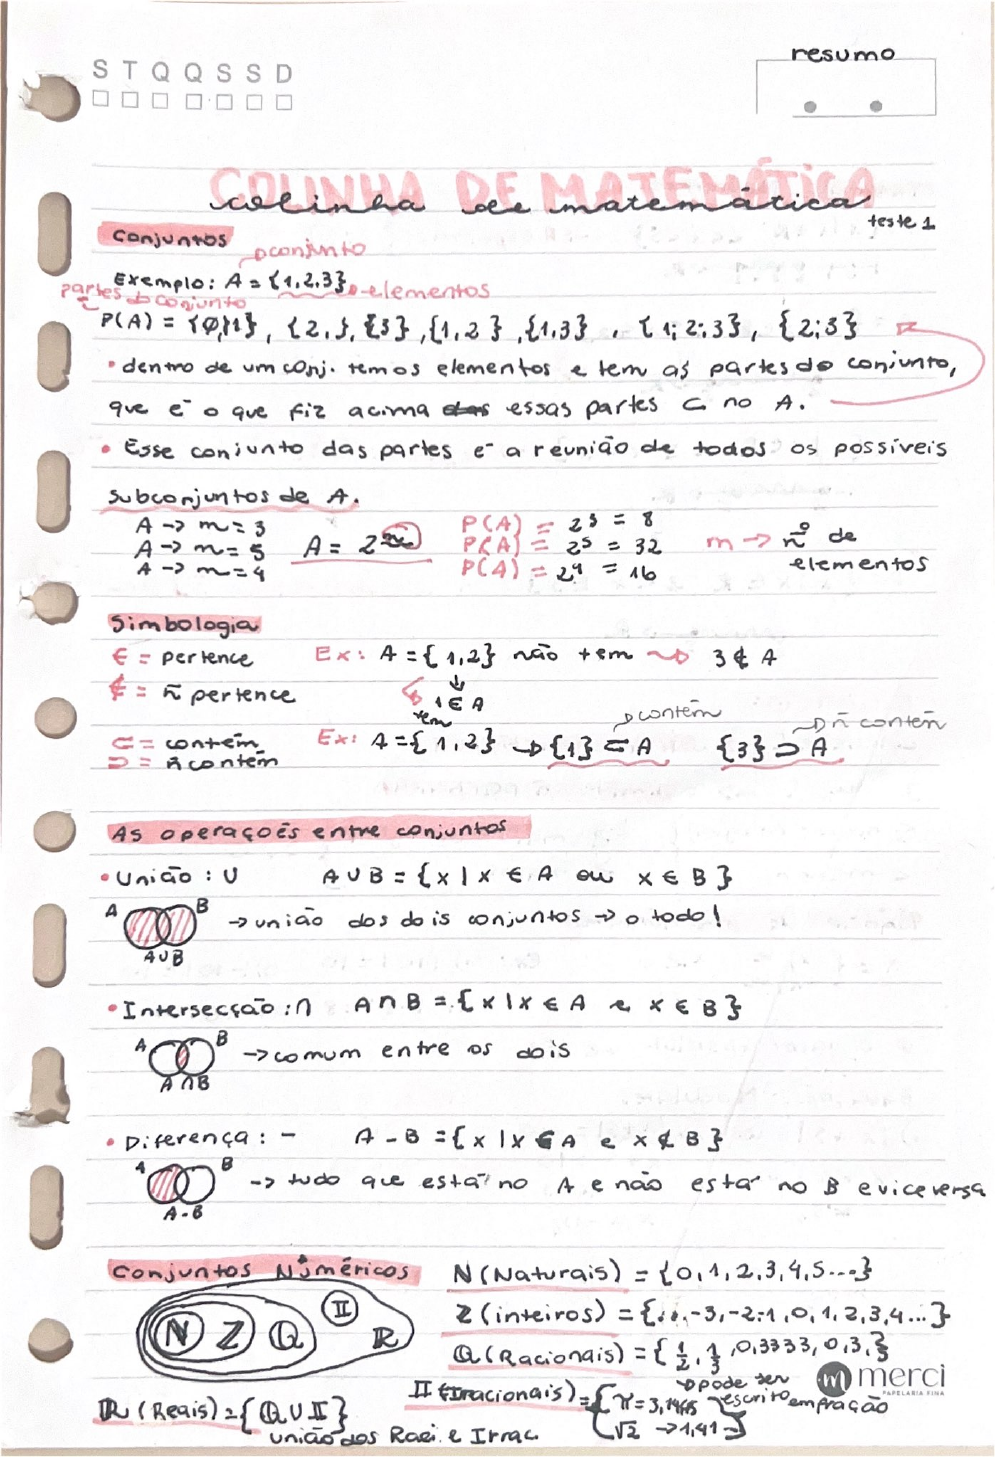 resumo
S T Q Q S S D
COLINHA DE MATEMÁTICA
colinha de matemática
teste 1
Conjuntos
conjunto
Exemplo: A = {1,2,3} elementos
partes do conjunto
P(A) = {Ø,}1}, {2,}, {3}, {1,2}, {1,3}, {1;2;3}, {2;3}
• dentro de um conj. temos elementos e tem as partes do conjunto,
que é o que fiz acima essas partes ⊂ no A.
• Esse conjunto das partes é a reunião de todos os possíveis
subconjuntos de A.
A → m = 3 P(A) = 2³ = 8
A → m = 5 A = 2 P(A) = 2⁵ = 32 m → nº de
A → m = 4 P(A) = 2⁴ = 16 elementos
Simbologia
∈ = pertence Ex: A = {1,2} não tem → 3 ∉ A
∉ = ñ pertence 1 ∈ A
tem
contém ñ contém
⊂ = contém Ex: A = {1,2} → {1} ⊂ A {3} ⊃ A
⊃ = ñ contém
As operaçoẽs entre conjuntos
• União : U A U B = {x | x ∈ A ou x ∈ B}
A B → união dos dois conjuntos → o todo!
A U B
• Intersecção : ∩ A ∩ B = {x | x ∈ A e x ∈ B}
A B → comum entre os dois
A ∩ B
• Diferença : - A - B = {x | x ∈ A e x ∉ B}
A B → tudo que está no A e não está no B e vice versa
A - B
Conjuntos Numéricos N (Naturais) = {0,1,2,3,4,5...}
N Z Q II R Z (inteiros) = {...,-3,-2-1,0,1,2,3,4...}
Q (Racionais) = {1/2, 1/3, 0,3333, 0,3,}
pode ser escrito em fração
merci
PAPELARIA FINA
II (Irracionais) = {π = 3,1415
√2 → 1,41}
R (Reais) = {Q U II}
união dos Raci. e Irrac.